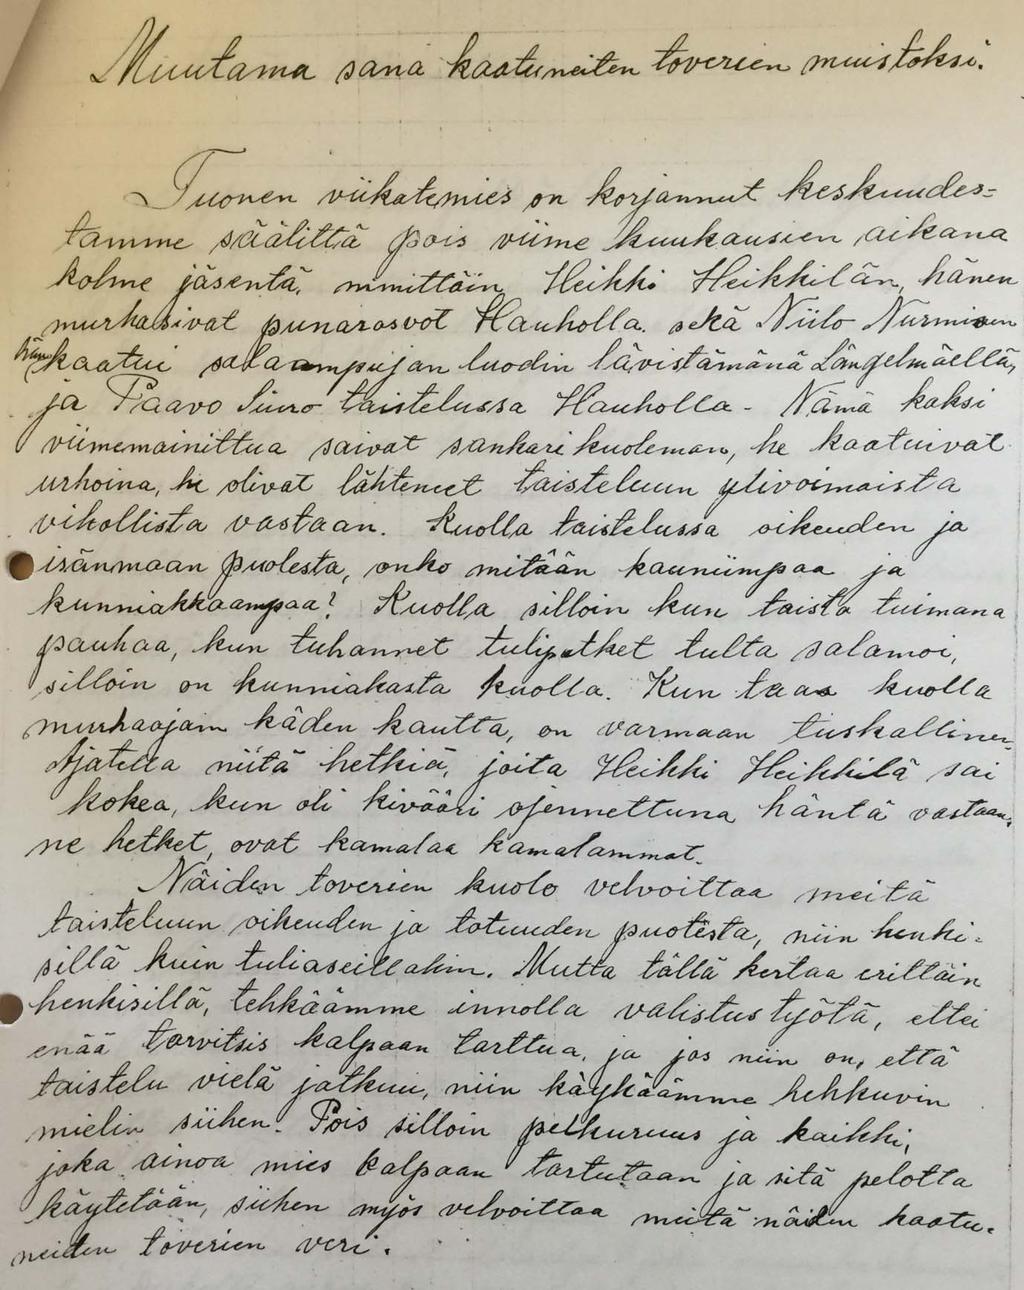 Muutama sana kaatuneiten toverien muistoksi.
Tuonen viikatemies on korjannut keskuudes=
tamme säälittä pois viime kuukausien aikana
kolme jäsentä, nimittäin Heikki Heikkilän, hänen
murhasivat punarosvot Hauholla. sekä Niilo Nurmisen
hän kaatui salaampujan luodin lävistämänä Längelmäellä,
ja Paavo Siuro taistelussa Hauholla - Nämä kaksi
viimemainittua saivat sankarikuoleman, he kaatuivat
urhoina, he olivat lähteneet taisteluun ylivoimaista
vihollista vastaan. Kuolla taistelussa oikeuden ja
isänmaan puolesta, onko mitään kauniimpaa ja
kunniakkaampaa? Kuolla silloin kun taisto tuimana
pauhaa, kun tuhannet tuliputket tulta salamoi,
silloin on kunniakasta kuolla. Kun taas kuolla
murhaajain käden kautta, on varmaan tuskallinen.
Ajatella niitä hetkiä, joita Heikki Heikkilä sai
kokea, kun oli kivääri ojennettuna häntä vastaan,
ne hetket, ovat kamalaa kamalammat.
Näiden toverien kuolo velvoittaa meitä
taisteluun oikeuden ja totuuden puolesta, niin henki=
sillä kuin tuliaseillakin. Mutta tällä kertaa erittäin
henkisillä, tehkäämme innolla valistustyötä, ettei
enää tarvitsis kalpaan tarttua, ja jos niin on, että
taistelu vielä jatkuu, niin käykäämme hehkuvin
mielin siihen. Pois silloin pelkuruus ja kaikki,
joka ainoa mies kalpaan tartutaan ja sitä pelotta
käytetään, siihen myös velvoittaa meitä näiden kaatu=
neiden toverien veri.